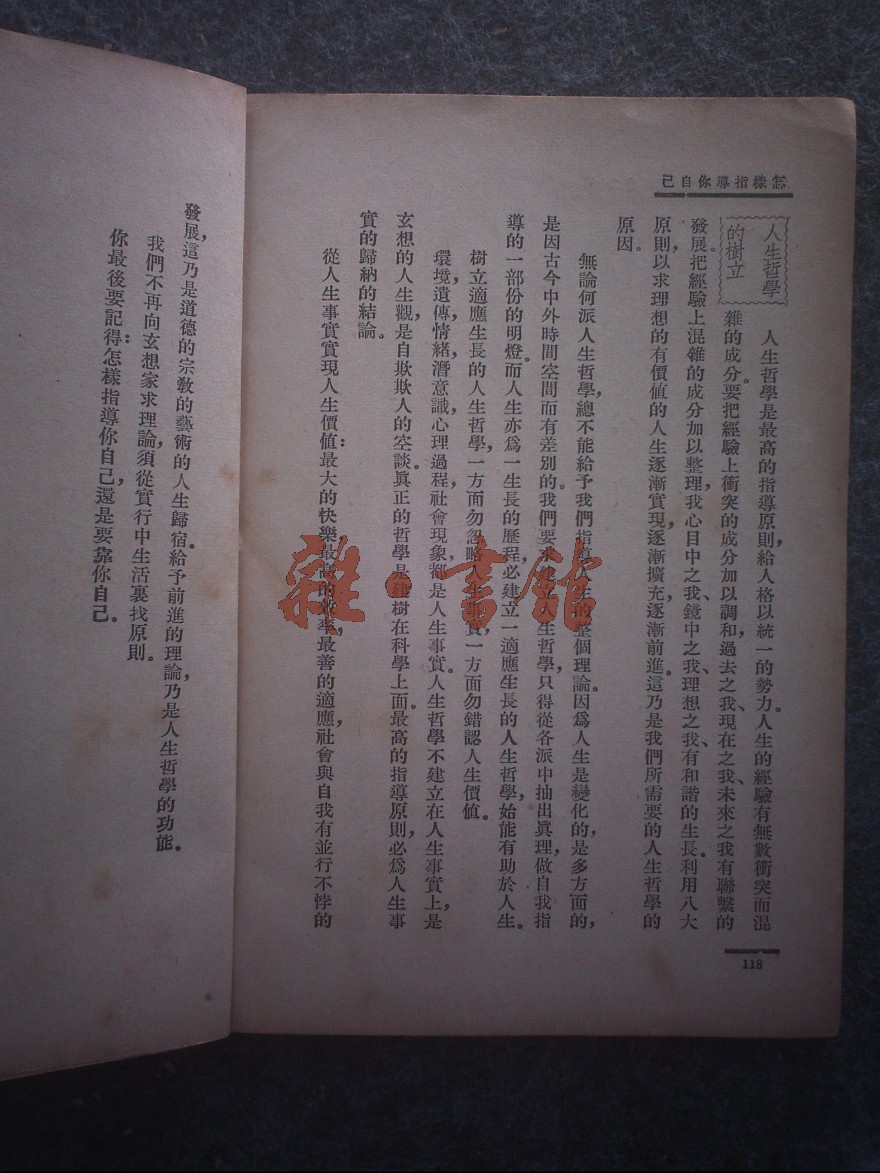 怎樣指導你自己
人生哲學
的樹立
人生哲學是最高的指導原則，給人格以統一的勢力。人生的經驗有無數衝突而混
雜的成分。要把經驗上衝突的成分加以調和，過去之我、現在之我、未來之我有聯繫的
發展。把經驗上混雜的成分加以整理，我心目中之我、鏡中之我、理想之我、有和諧的生長。利用八大
原則，以求理想的有價值的人生逐漸實現，逐漸擴充，逐漸前進。這乃是我們所需要的人生哲學的
原因。
無論何派人生哲學，總不能給予我們指導人生的整個理論。因爲人生是變化的，是多方面的，
是因古今中外時間空間而有差別的。我們要求建立人生哲學，只得從各派中抽出眞理，做自我指
導的一部份的明燈。而人生亦爲一生長的歷程，必建立一適應生長的人生哲學，始能有助於人生。
樹立適應生長的人生哲學，一方面勿忽略人生事實，一方面勿錯認人生價值。
環境，遺傳，情緒，潛意識，心理過程，社會現象都是人生事實。人生哲學不建立在人生事實上，是
玄想的人生觀，是自欺欺人的空談。眞正的哲學是建樹在科學上面。最高的指導原則，必爲人生事
實的歸納的結論。
從人生事實實現人生價值：最大的快樂，最高的效率，最善的適應，社會與自我有並行不悖的
118
發展，這乃是道德的宗教的藝術的人生歸宿。給予前進的理論，乃是人生哲學的功能。
我們不再向玄想家求理論，須從實行中生活裏找原則。
你最後要記得：怎樣指導你自己，還是要靠你自己。
雜·書館